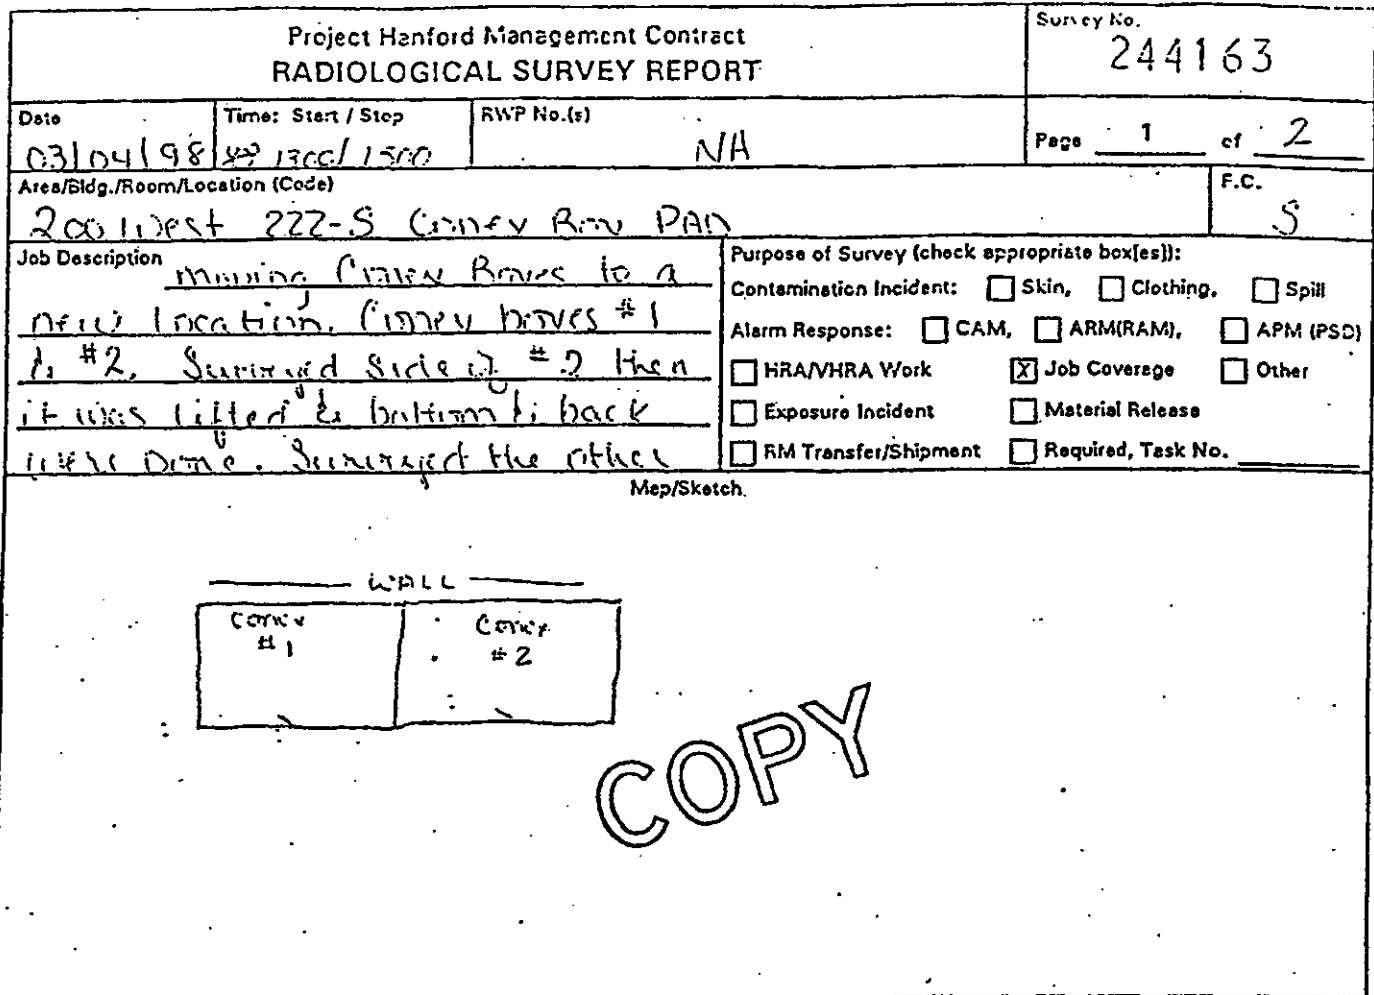 Project Hanford Management Contract
RADIOLOGICAL SURVEY REPORT
Survey No.
244163
Date
03/04/98
Time: Start / Stop
1300/1500
RWP No.(s)
NA
Page 1 of 2
Area/Bldg./Room/Location (Code)
200 West 222-S Conex Box PAD
F.C.
S
Job Description
Moving Conex Boxes to a
new location. Conex boxes #1
& #2. Surveyed Side of #2 then
it was lifted & bottom & back
were Done. Surveyed the other
Purpose of Survey (check appropriate box[es]):
Contamination Incident: Skin, Clothing, Spill
Alarm Response: CAM, ARM(RAM), APM (PSD)
HRA/VHRA Work X Job Coverage Other
Exposure Incident Material Release
RM Transfer/Shipment Required, Task No.
Map/Sketch
WALL
Conex
#1
Conex
#2
COPY